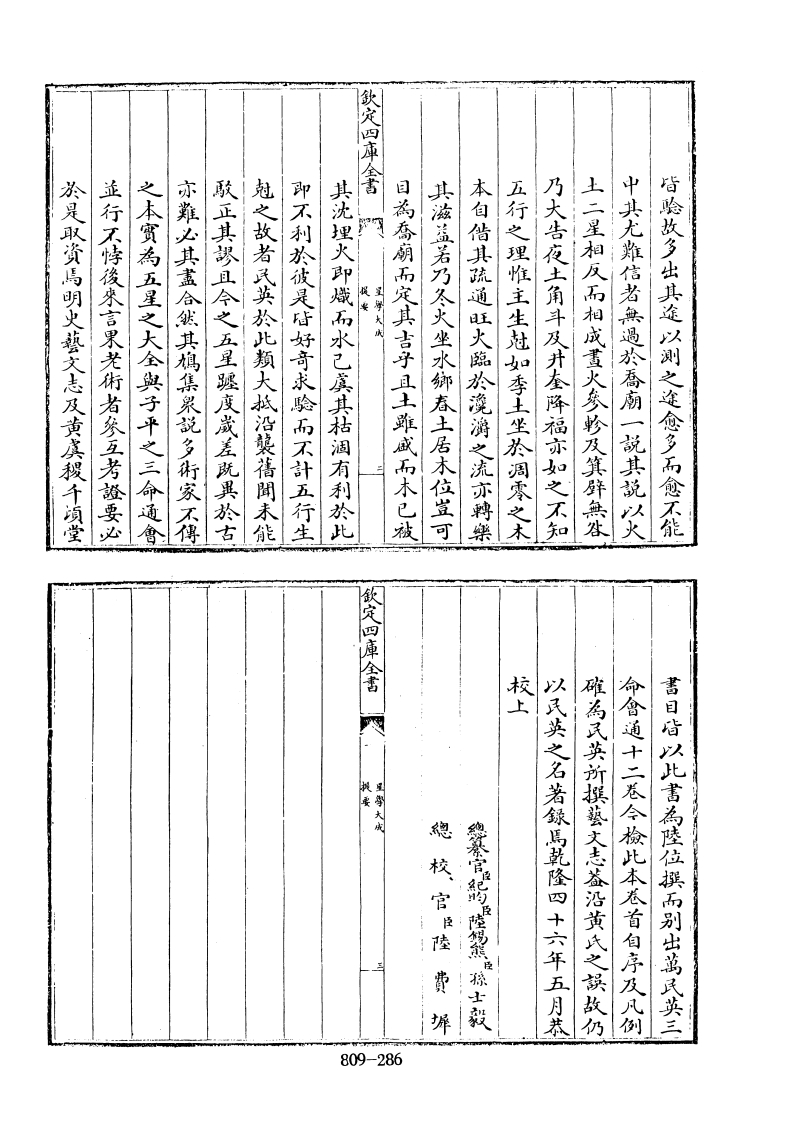 皆驗故多出其途以測之途愈多而愈不能
中其尤難信者無過於喬廟一說其說以火
土二星相反而相成晝火參軫及箕壁無咎
乃大吉夜土角斗及井奎降福亦如之不知
五行之理惟主生尅如季土坐於凋零之木
本自借其疏通旺火臨於瀺灂之流亦轉樂
其滋益若乃冬火坐水鄉春土居木位豈可
目為喬廟而定其吉乎且土雖盛而木已被
欽定四庫全書
星學大成
提要
二
其沈埋火即熾而水已虞其枯涸有利於此
即不利於彼是皆好奇求驗而不計五行生
尅之故者民英於此類大抵沿襲舊聞未能
駁正其謬且今之五星躔度歲差既異於古
亦難必其盡合然其鳩集衆說多術家不傳
之本實為五星之大全與子平之三命通會
並行不悖後來言果老術者參互考證要必
於是取資焉明史藝文志及黃虞稷千頃堂
書目皆以此書為陸位撰而別出萬民英三
命會通十二卷今檢此本卷首自序及凡例
確為民英所撰藝文志葢沿黃氏之誤故仍
以民英之名著錄焉乾隆四十六年五月恭
校上
總纂官臣紀昀臣陸錫熊臣孫士毅
總校官臣陸費墀
欽定四庫全書
星學大成
提要
三
809-286